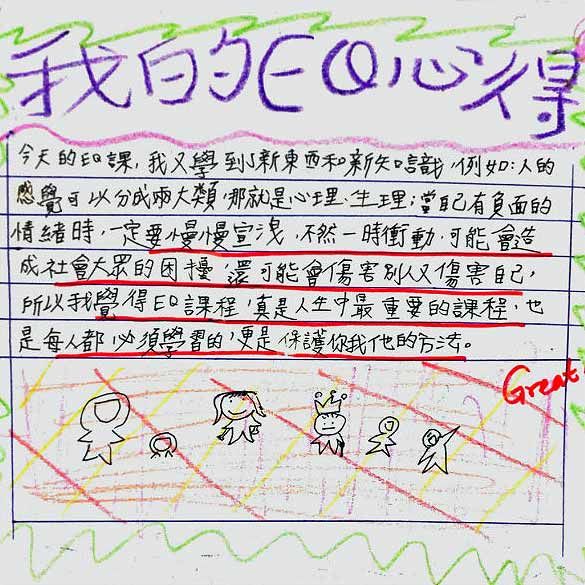 我的EQ心得
今天的EQ課，我又學到新東西和新知識，例如：人的
感覺可以分成兩大類，那就是心理、生理；當自己有負面的
情緒時，一定要慢慢宣洩，不然一時衝動，可能會造
成社會大眾的困擾，還可能會傷害別人又傷害自己，
所以我覺得EQ課程，真是人生中最重要的課程，也
是每人都必須學習的，更是保護你我他的方法。
Great